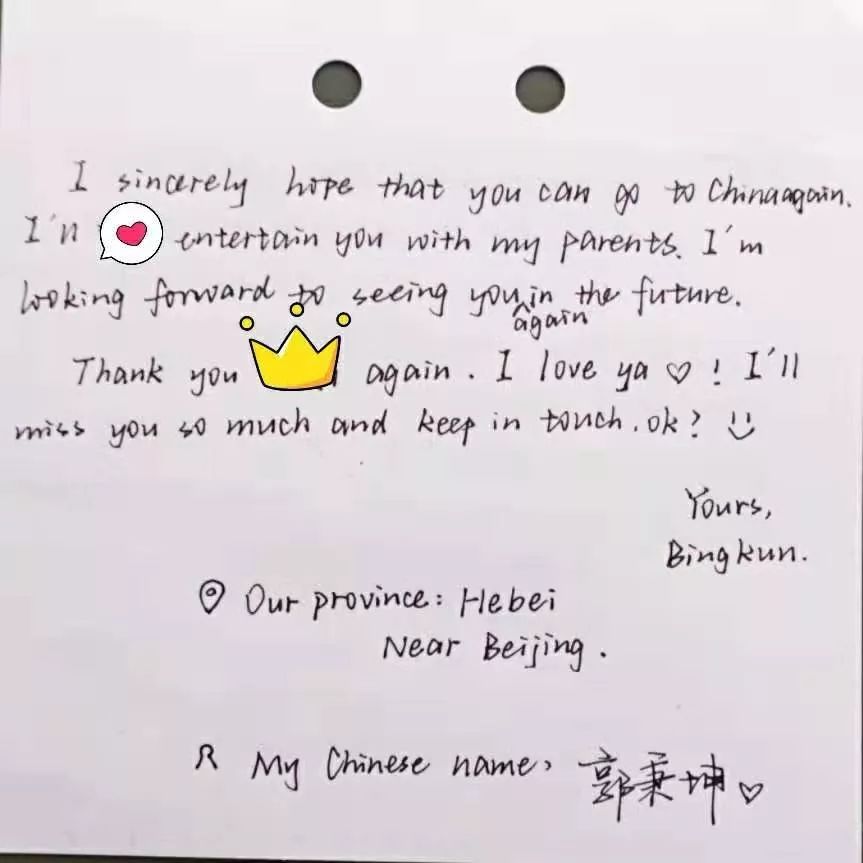 I sincerely hope that you can go to China again.
I'll entertain you with my parents. I'm
looking forward to seeing you again in the future.
Thank you again. I love ya ♡! I'll
miss you so much and keep in touch. ok?
Yours,
Bingkun.
Our province: Hebei
Near Beijing.
My Chinese name:
郭秉坤♡